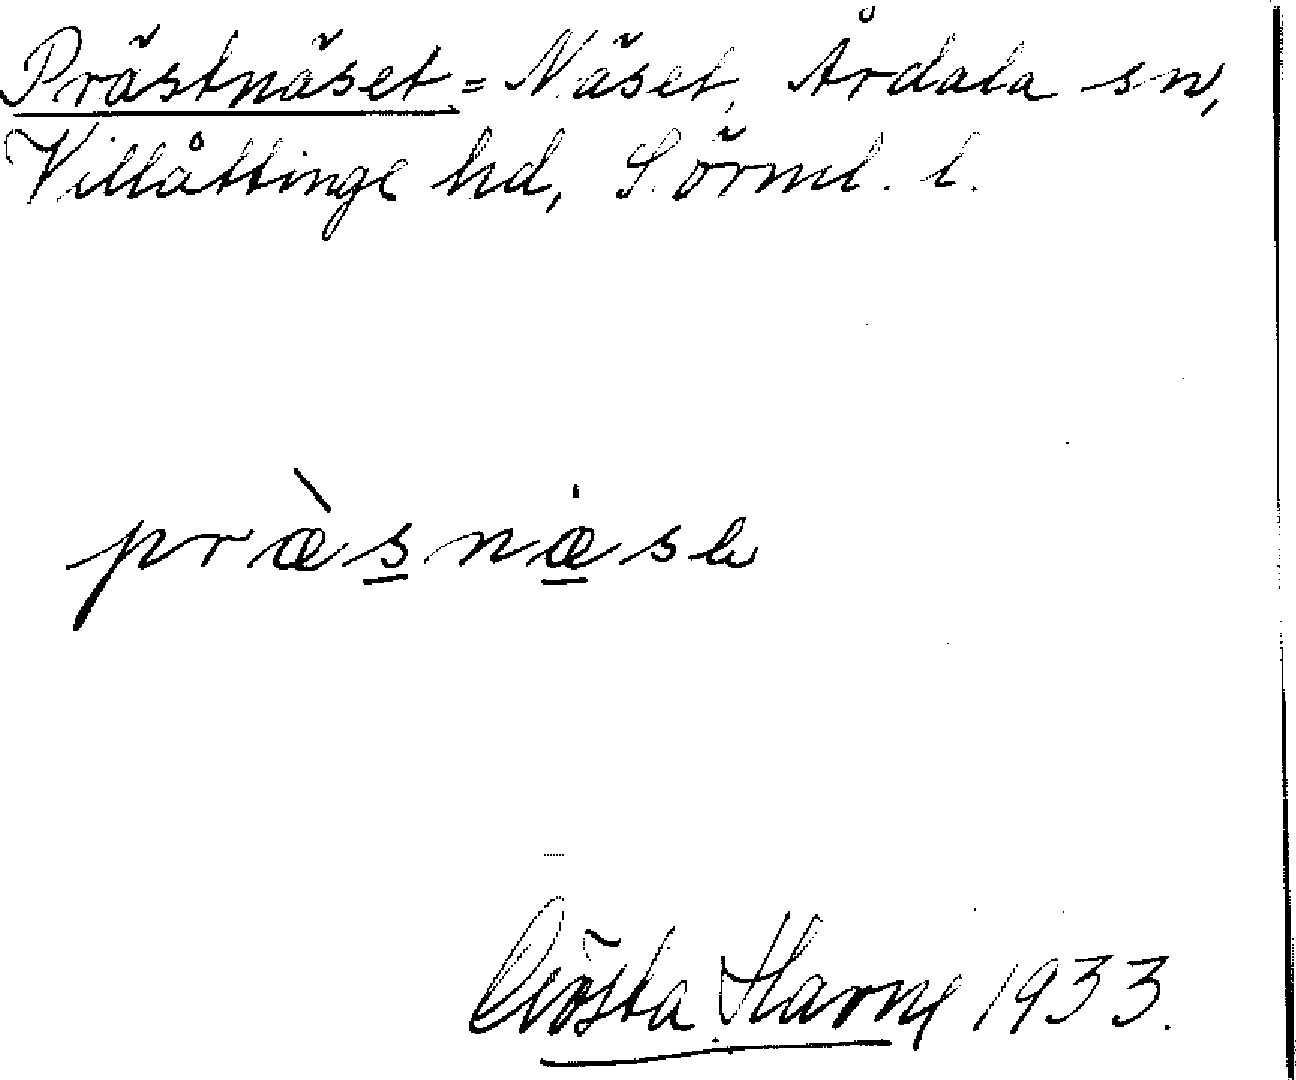 Prästnäset = Näset, Årdala sn,
Villåttinge hd, Sörml. l.
præ̀snæse
Gösta Harne 1933.